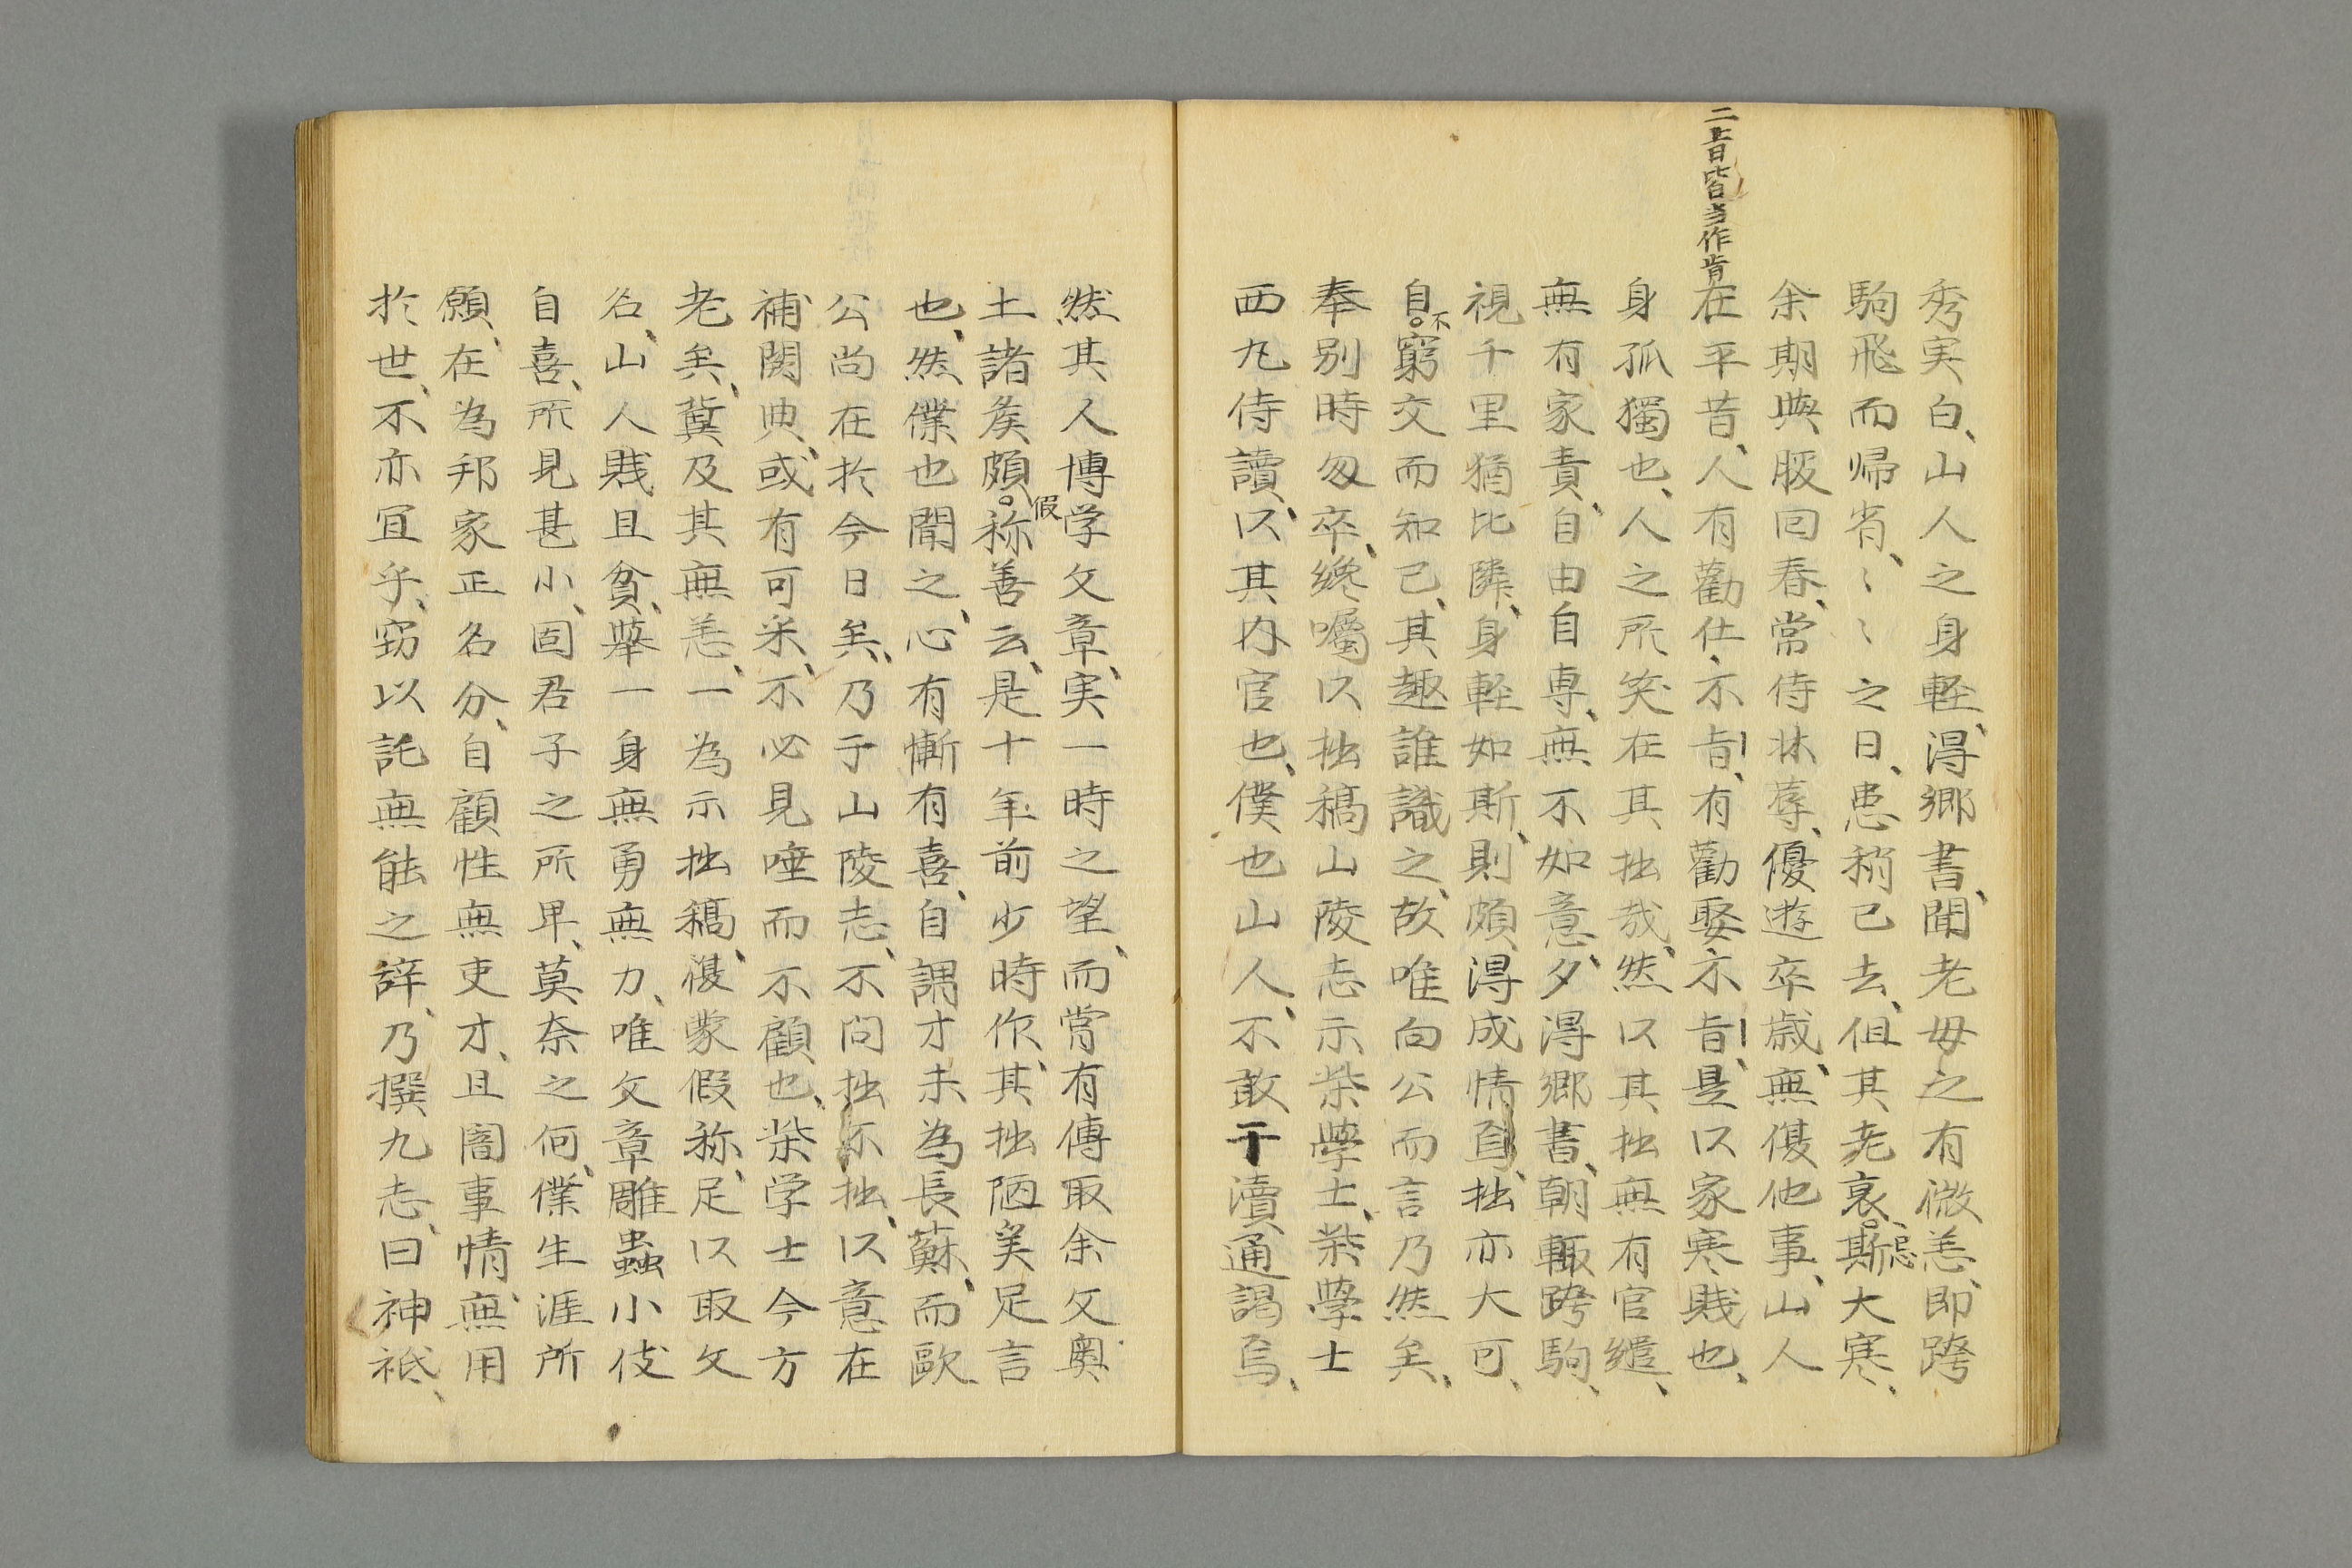 二㫖皆当作肯
秀実白、山人之身軽、得郷書、聞老毋之有微恙、即跨
駒飛而帰省、〻〻之日、患稍已去、但其老衰、忌斯大寒、
余期與服回春、常侍牀蓐、優遊卒歳、無復他事、山人
在平昔、人有勸仕、不㫖、有勸娶不㫖、是以家寒賎也、
身孤獨也、人之所笑在其拙哉、然以其拙無有官繾、
無有家責、自由自専、無不如意、夕得郷書、朝輙跨駒、
視千里猶比隣、身軽如斯、則頗得成情直、拙亦大可、
自不窮交而知己、其趣誰識之、故唯向公而言乃然矣、
奉别時匆卒、纔囑以拙稿山陵志示柴學士、柴學士
西九侍讀、以其内官也、僕也山人、不敢干瀆通謁焉、
然其人博学文章、実一時之望、而嘗有傳取余文奥
土諸矦頗假称善云、是十年前少時作、其拙陋奚足言
也、然僕也聞之、心有慚有喜、自謂才未為長蘇、而歐
公尚在於今日矣、乃于山陵志、不問拙不拙、以意在
補闕典、或有可采、不必見唾而不顧也、柴学士今方
老矣、冀及其無恙、一為示拙稿、復蒙假称、足以取文
名、山人賎且貧、舉一身無勇無力、唯文章雕蟲小伎
自喜、所見甚小、固君子之所卑、莫奈之何、僕生涯所
願、在為邦家正名分、自顧性無吏才、且闇事情、無用
於世、不亦冝乎、窃以託無能之辞、乃撰九志、曰神祇、